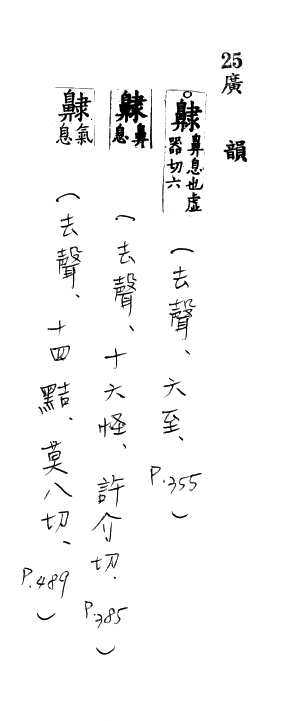 25廣韻
齂鼻息也虛器切六（去聲、六至、P.355）
齂鼻息（去聲、十六怪、許介切.P.385）
齂氣息（去聲、十四黠、莫八切、P.489）